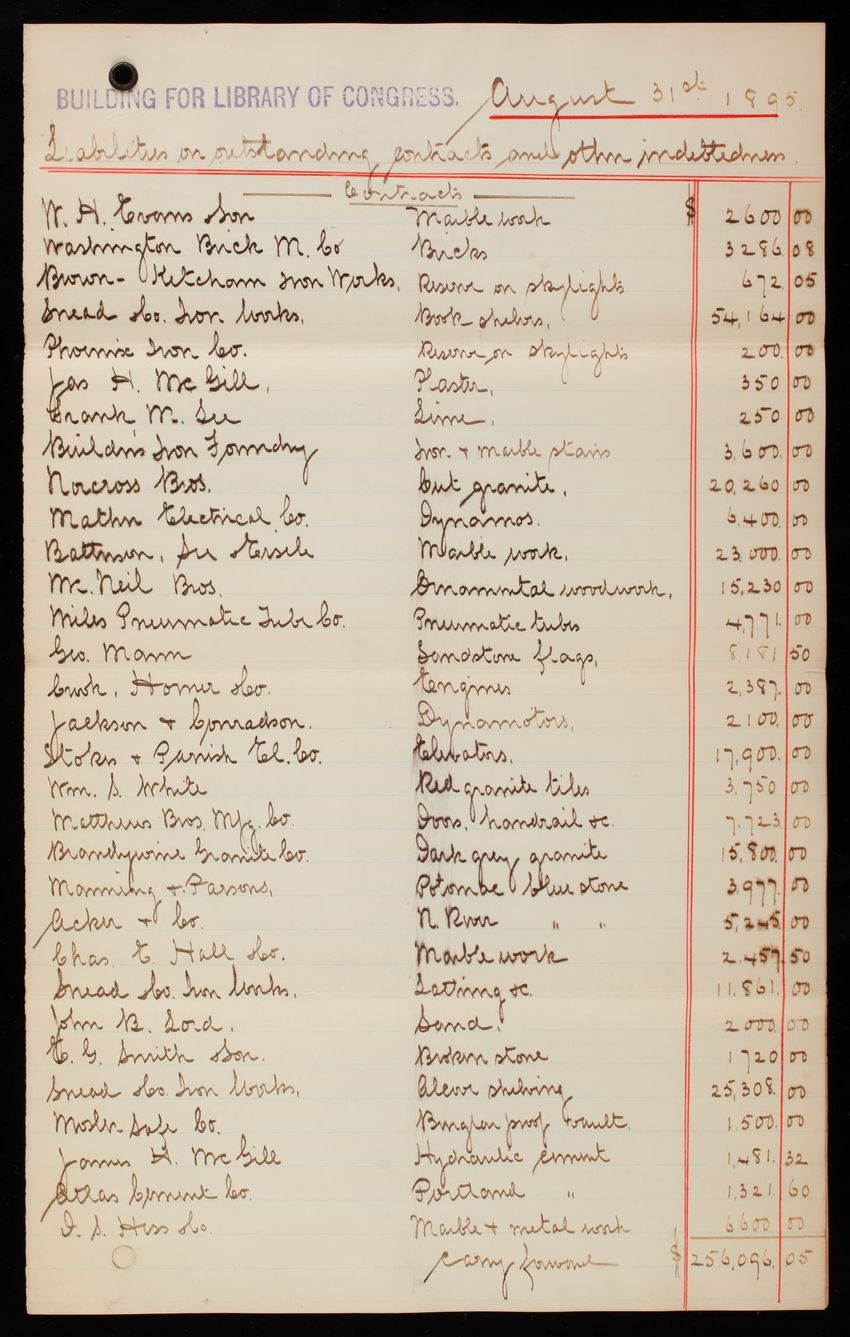 BUILDING FOR LIBRARY OF CONGRESS. August 31st 1895.
Liabilities on outstanding contracts and other indebtedness.
Contracts
W. H. Evans & Son Marble work $ 2600 00
Washington Brick M. Co Bricks 3286 08
Brown-Ketcham Iron Works, Reserve on skylights 672 05
Snead & Co. Iron Works, Book shelves, 54,164 00
Phoenix Iron Co. Reserve on skylights 200. 00
Jas H. McGill, Plaster, 350 00
Frank M. Lee Lime, 250 00
Builders Iron Foundry Iron & marble stairs 3,600. 00
Norcross Bros. Cut granite, 20,260 00
Mather Electrical Co. Dynamos. 6,400. 00
Batterson, See & Eisele Marble work, 23,000. 00
Mc.Neil Bros. Ornamental woodwork, 15,230 00
Miles Pneumatic Tube Co. Pneumatic tubes 4,771. 00
Geo. Mann Sandstone flags, 8,181 50
Crook, Horner & Co. Engines 2,387. 00
Jackson & Conradson. Dynamotors, 2100. 00
Stokes & Parrish El. Co. Elevators, 17,900. 00
Wm. S. White Red granite tiles 3.750 00
Matthews Bros. Mfg. Co. Doors, handrail &c. 7.723 00
Brandywine Granite Co. Dark grey granite 15,800. 00
Manning & Parsons, Potomac blue stone 3,977. 00
Acker & Co. N. River " " 5,245 00
Chas. E. Hall & Co. Marble work 2.457. 50
Snead & Co. Iron Works, Lathing &c. 11,861. 00
John B. Lord, Sand. 2000. 00
E. G. Smith & Son. Broken stone 1720 00
Snead & Co. Iron Works, Alcove shelving 25,308. 00
Mosler Safe Co. Burglar proof vault, 1.500. 00
James H. McGill Hydraulic cement 1,481. 32
Atlas Cement Co. Portland " 1,321. 60
D. S. Hess & Co. Marble & metal work 6600 00
Carry forward $ 256,096. 05